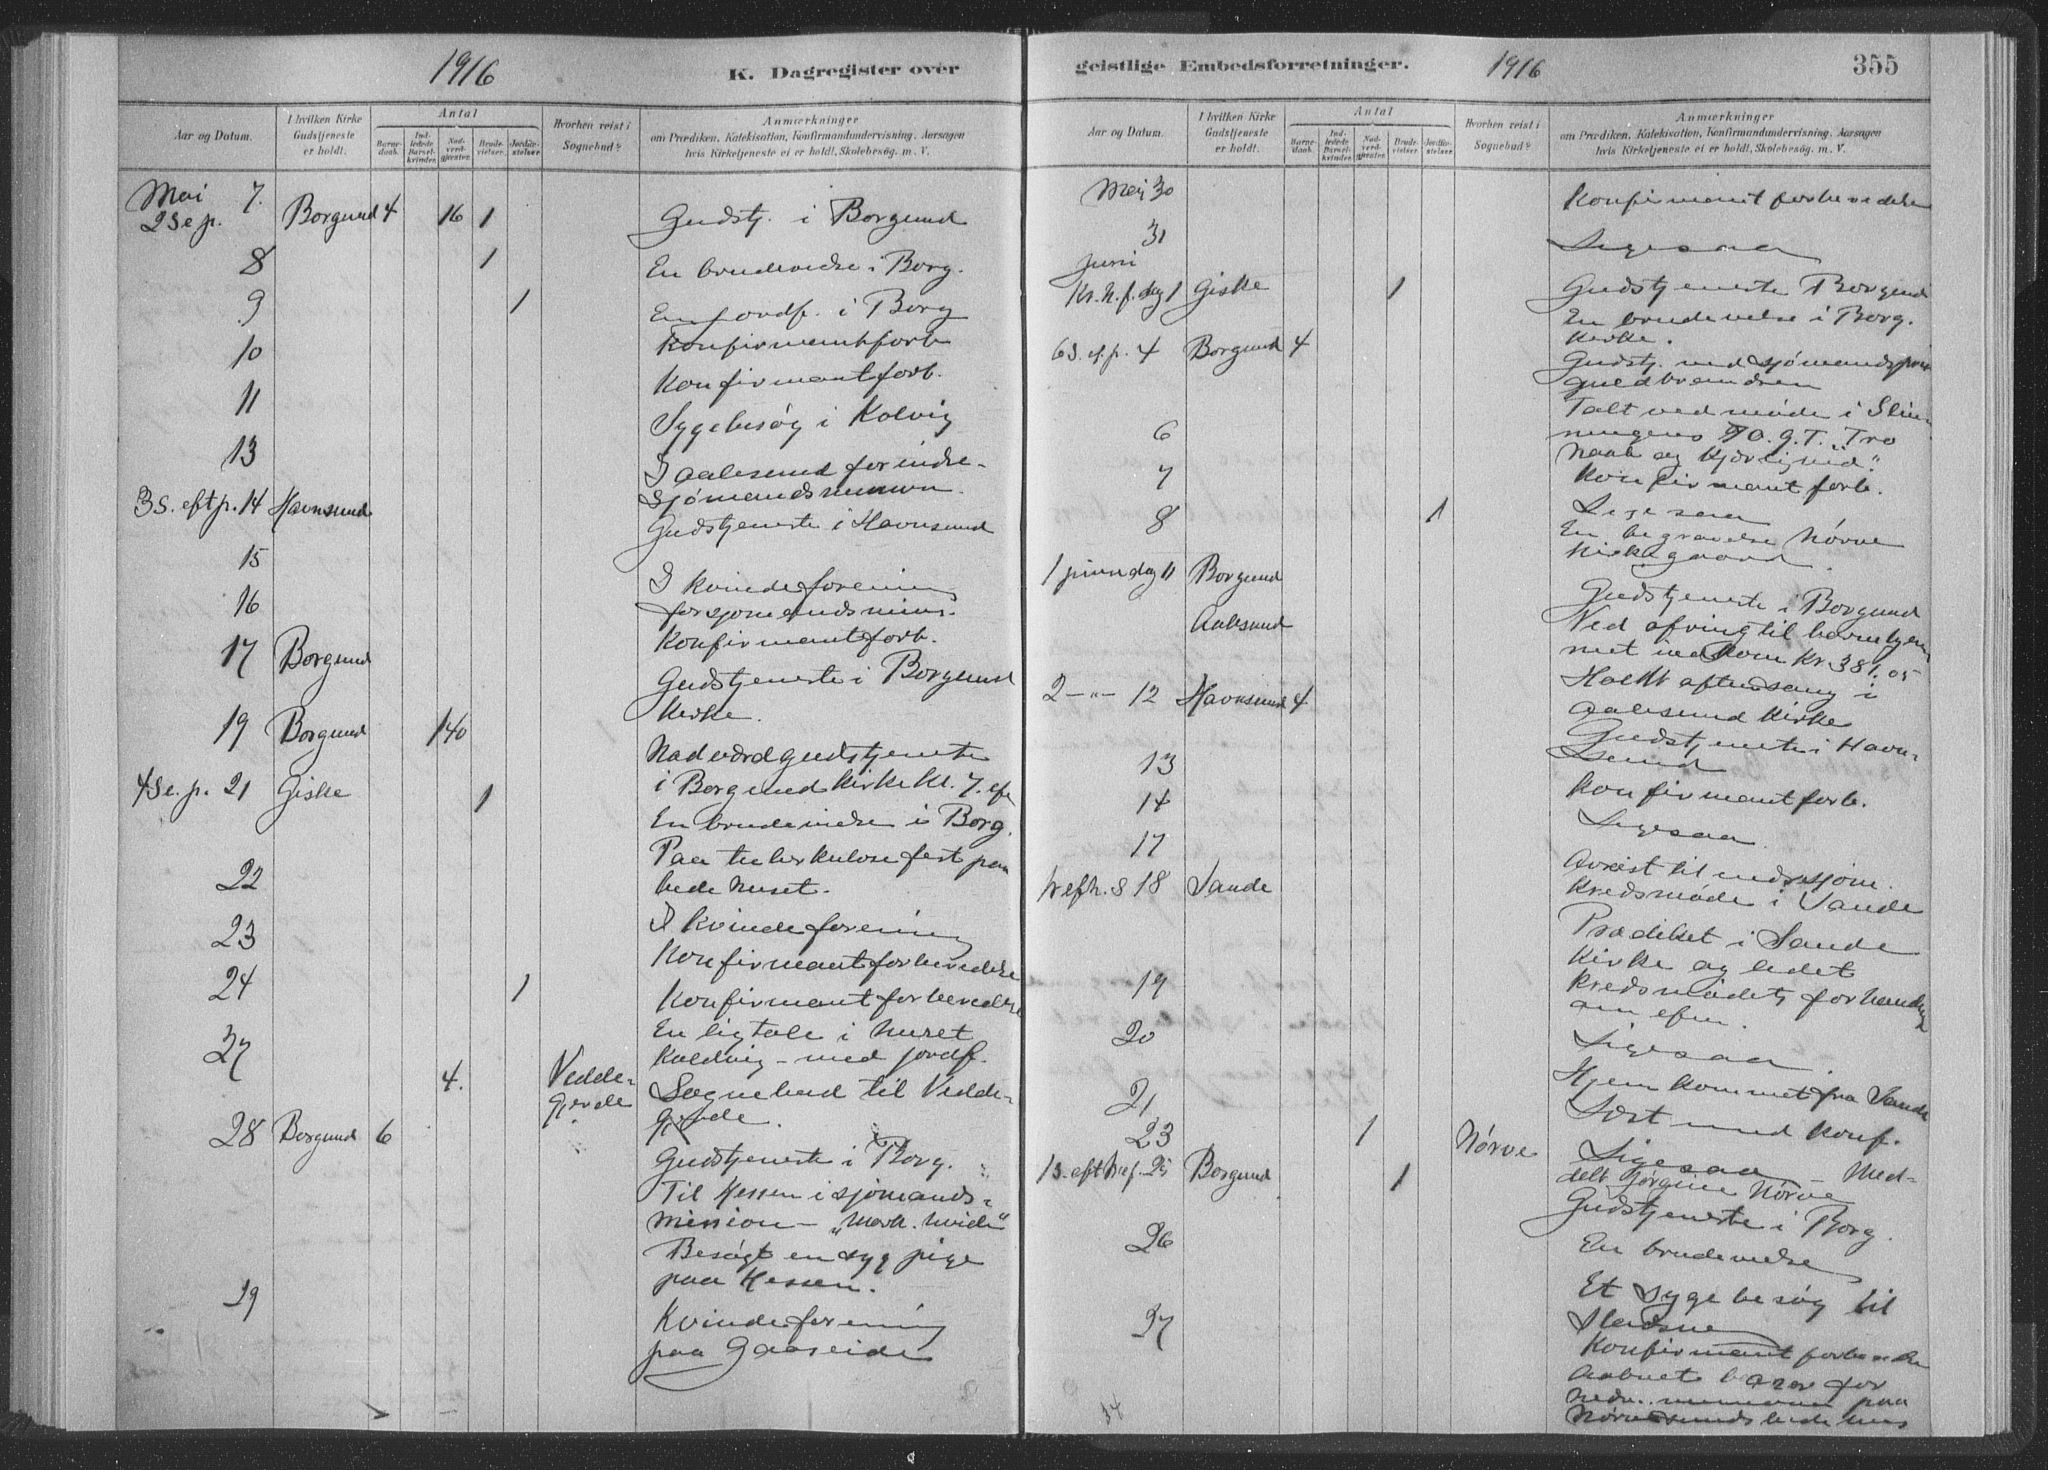 1916
K. Dagregister over
Aar og Datum.
I hvilken Kirke Gudstjeneste er holdt.
Antal
Barnedaab.
Indledede Barselkvinder.
Nadverdgjester.
Brudevielser.
Jordfæstelser.
Hvorhen reist i Sognebud?
Anmærkninger
om Prædiken, Katekisation, Konfirmandundervisning, Aarsagen
hvis Kirketjeneste ei er holdt, Skolebesøg. m. V.
Mai 7.
2 S e p. Borgund 4 16 1 Gudstj. i Borgund
8 1 En brudevielse i Borg.
9 1 En jordf. i Borg
Konfirmantforb.
10 Konfirmantforb.
11 Sygebesøg i Kolvig
13 I Aalesund for indre-
sjømandsmission.
3 S. eft p. 14 Havnsund Gudstjeneste i Havnsund
15 I kvindeforening
16 for sjømandsmiss.
Konfirmantforb.
17 Borgund Gudstjeneste i Borgund
Kirke.
19 Borgund 140 Nadverdgudstjeneste
i Borgund Kirke kl. 7. ef
4 S e. p. 21 Giske 1 En brudevielse i Borg.
Paa tuberkulosefest paa
22 bedehuset.
I kvindeforening
23 Konfirmantforberedelse
24 1 Konfirmantforberedelse
En ligtale i huset
27 Koldvig – med jordf.
4. Vedde-
gjerde Sognebud til Vedde-
gjerde.
28 Borgund 6 Gudstjeneste i Borg.
Til Hessen i sjømands-
mission – „Mark. hvide"
Besøgt en syg pige
paa Hessen.
29 Kvindeforening
paa Gaaseide
geistlige Embedsforretninger.
1916
355
Aar og Datum.
I hvilken Kirke Gudstjeneste er holdt.
Antal
Barnedaab.
Indledede Barselkvinder.
Nadverdgjester.
Brudevielser.
Jordfæstelser.
Hvorhen reist i Sognebud?
Anmærkninger
om Prædiken, Katekisation, Konfirmandundervisning, Aarsagen
hvis Kirketjeneste ei er holdt, Skolebesøg. m. V.
Mai 30 Konfirmantforberedelse
31 Ligesaa
Juni
Kr. h. f. dag 1 Giske 1 Gudstjeneste Borgund
En brudevielse i Borg.
Kirke.
6 S. ef. p. 4 Borgund 4 Gudstj. ved sjømandsprest
Guldbrandsen
Talt ved møde i Slin-
ningens I.O.G.T. „Tro
6 haab og kjærlighed".
7 Konfirmantforb.
Ligesaa
8 1 En begravelse Nørve
Kirkegaard.
1 pinsedag 11 Borgund Gudstjeneste i Borgund
Aalesund Ved ofring til barnehjem-
met indkom kr. 381.05
Holdt aftensang i
2 – " – 12 Havnsund 4 Aalesund Kirke
Gudstjeneste i Havn-
13 sund
14 Konfirmantforb.
17 Ligesaa
Avreist til indresjøm.
Tr efh. S 18 Sande kredsmøde i Sande
Prædiket i Sande
Kirke og ledet
19 kredsmødets forhandling
20 Ligesaa.
Hjemkommet fra Sande
21 Læst med konf.
23 1 Nørve Ligesaa – Med-
delt Jørgine Nørve
1 S. eft tref. 25 Borgund 1 Gudstjeneste i Borg.
26 En brudevielse
Et sygebesøg til
27
Konfirmantforberedelse
Aabnet bazar for
indre. mission paa
Nørvesunds bedehus
14